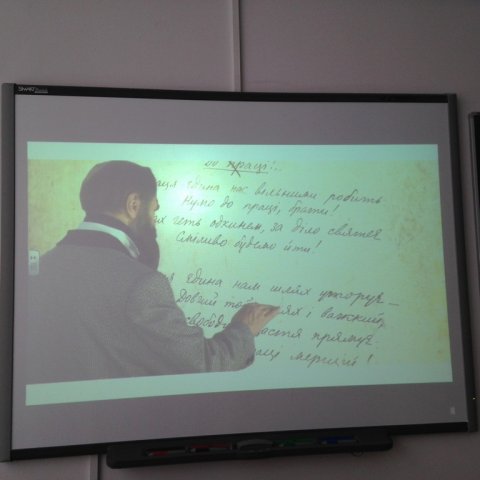 SMART
до праці!..
праця єдина нас вольними робить
Нумо до праці, брати!
геть одкинем, за діло святеє
Сміливо будемо йти!
єдина нам шлях уторує —
Довгий той шлях і важкий,
прямує
мерщій!